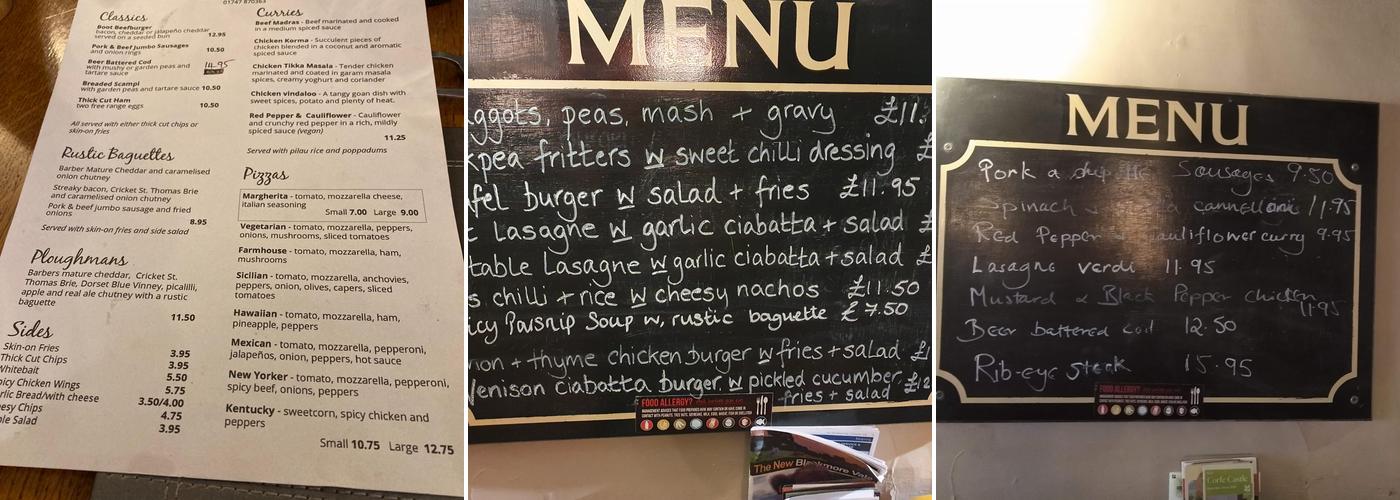 01747 870363
Classics
Boot Beefburger
bacon, cheddar or jalapeño cheddar
served on a seeded bun 12.95
Pork & Beef Jumbo Sausages
and onion rings 10.50
Beer Battered Cod
with mushy or garden peas and
tartare sauce 11.95
Breaded Scampi
with garden peas and tartare sauce 10.50
Thick Cut Ham
two free range eggs 10.50
All served with either thick cut chips or
skin-on fries
Rustic Baguettes
Barber Mature Cheddar and caramelised
onion chutney
Streaky bacon, Cricket St. Thomas Brie
and caramelised onion chutney
Pork & beef jumbo sausage and fried
onions
8.95
Served with skin-on fries and side salad
Ploughmans
Barbers mature cheddar, Cricket St.
Thomas Brie, Dorset Blue Vinney, picalilli,
apple and real ale chutney with a rustic
baguette
11.50
Sides
Skin-on Fries 3.95
Thick Cut Chips 3.95
Whitebait 5.50
icy Chicken Wings 5.75
rlic Bread/with cheese 3.50/4.00
esy Chips 4.75
le Salad 3.95
Curries
Beef Madras - Beef marinated and cooked
in a medium spiced sauce
Chicken Korma - Succulent pieces of
chicken blended in a coconut and aromatic
spiced sauce
Chicken Tikka Masala - Tender chicken
marinated and coated in garam masala
spices, creamy yoghurt and coriander
Chicken vindaloo - A tangy goan dish with
sweet spices, potato and plenty of heat.
Red Pepper & Cauliflower - Cauliflower
and crunchy red pepper in a rich, mildly
spiced sauce (vegan)
11.25
Served with pilau rice and poppadums
Pizzas
Margherita - tomato, mozzarella cheese,
italian seasoning
Small 7.00 Large 9.00
Vegetarian - tomato, mozzarella, peppers,
onions, mushrooms, sliced tomatoes
Farmhouse - tomato, mozzarella, ham,
mushrooms
Sicilian - tomato, mozzarella, anchovies,
peppers, onion, olives, capers, sliced
tomatoes
Hawaiian - tomato, mozzarella, ham,
pineapple, peppers
Mexican - tomato, mozzarella, pepperoni,
jalapeños, onion, peppers, hot sauce
New Yorker - tomato, mozzarella, pepperoni,
spicy beef, onions, peppers
Kentucky - sweetcorn, spicy chicken and
peppers
Small 10.75 Large 12.75
MENU
aggots, peas, mash + gravy £11.
kpea fritters w sweet chilli dressing £
fel burger w salad + fries £11.95
Lasagne w garlic ciabatta + salad £
table Lasagne w garlic ciabatta + salad £
s chilli + rice w cheesy nachos £11.50
icy Parsnip Soup w, rustic baguette £7.50
mon + thyme chicken burger w fries + salad £1
Venison ciabatta burger w pickled cucumber £12
- fries + salad
FOOD ALLERGY?
The New Blackmore Val
MENU
Pork a Sausages 9.50
Spinach cannelloni 11.95
Red Pepper cauliflower curry 9.95
Lasagne verdi 11.95
Mustard & Black Pepper chicken
11.95
Beer battered cod 12.50
Rib-eye steak 15.95
FOOD ALLERGY?
Corfe Castle